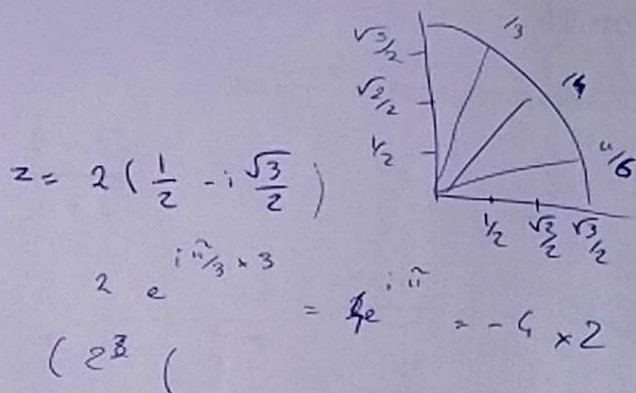 √3/2 /3
√2/2 /4
1/2 π/6
1/2 √2/2 √3/2
z = 2 ( 1/2 - i √3/2 )
2 e^{i π/3 × 3} = 4e^{i π} = - 4 × 2
( 2^3 (